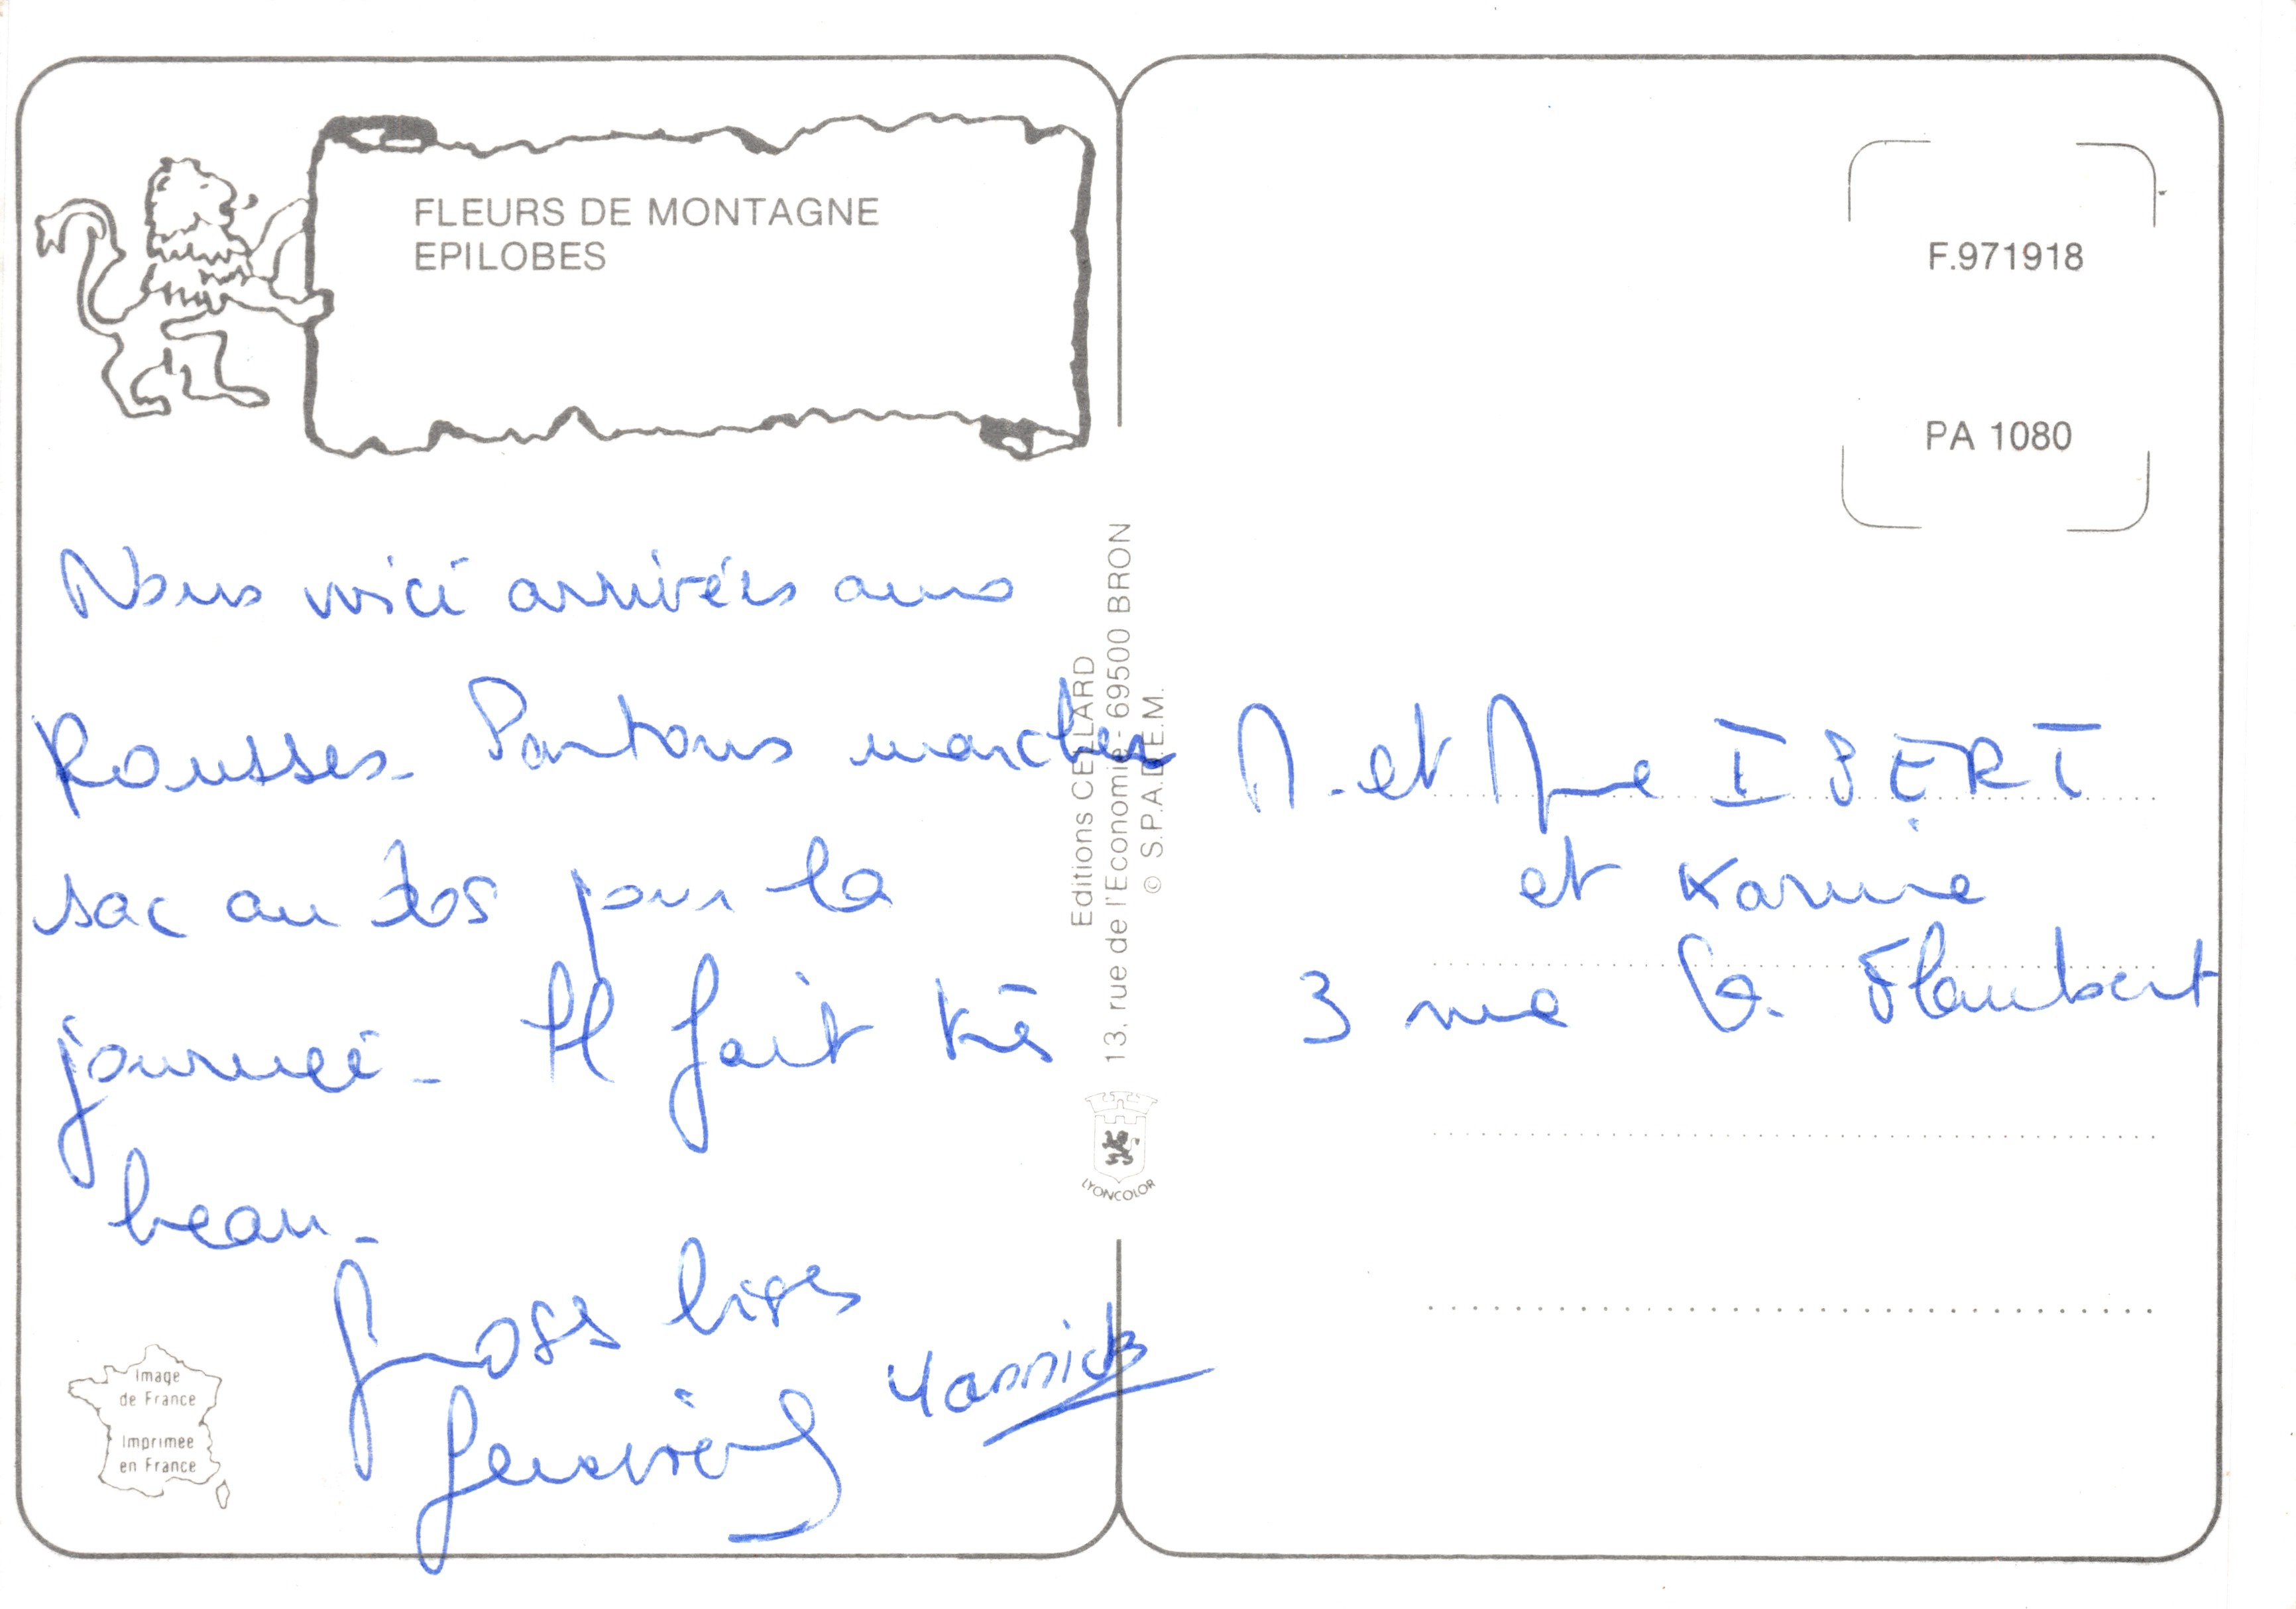 FLEURS DE MONTAGNE
EPILOBES
Nous voici arrivées aux
Rousses. Partons marcher
sac au dos pour la
journée - Il fait très
beau -
Grosses bises
Geneviève
Yannick
Editions CELLARD
13, rue de l'Economie - 69500 BRON
© S.P.A.D.E.M.
LYONCOLOR
Image
de France
Imprimée
en France
F.971918
PA 1080
M. et Mme ISERT
et Karine
3 rue G. Flaubert